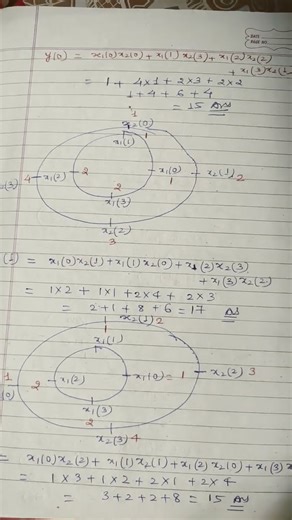 DATE
PAGE NO.
y(0) = x₁(0)x₂(0) + x₁(1) x₂(3) + x₁(2) x₂(2)
+ x₁(3) x₂(
= 1 + 4×1 + 2×3 + 2×2
1 + 4 + 6 + 4
= 15 Ans
1
x₂(0)
x₁(1) 1
(3) 4 x₁(2) 2 x₁(0) 1 x₂(1) 2
2
x₁(3)
x₂(2)
3
(1) = x₁(0)x₂(1) + x₁(1) x₂(0) + x₁(2) x₂(3)
+ x₁(3) x₂(2)
= 1×2 + 1×1 + 2×4 + 2×3
= 2+1 + 8 + 6 = 17 Ans
1
x₂(1) 2
x₁(1)
1 (0) 2 x₁(2) x₁(0) = 1 x₂(2) 3
x₁(3)
2
x₂(3) 4
= x₁(0) x₂(2) + x₁(1) x₂(1) + x₁(2) x₂(0) + x₁(3) x
= 1×3 + 1×2 + 2×1 + 2×4
= 3 + 2 + 2 + 8 = 15 Ans